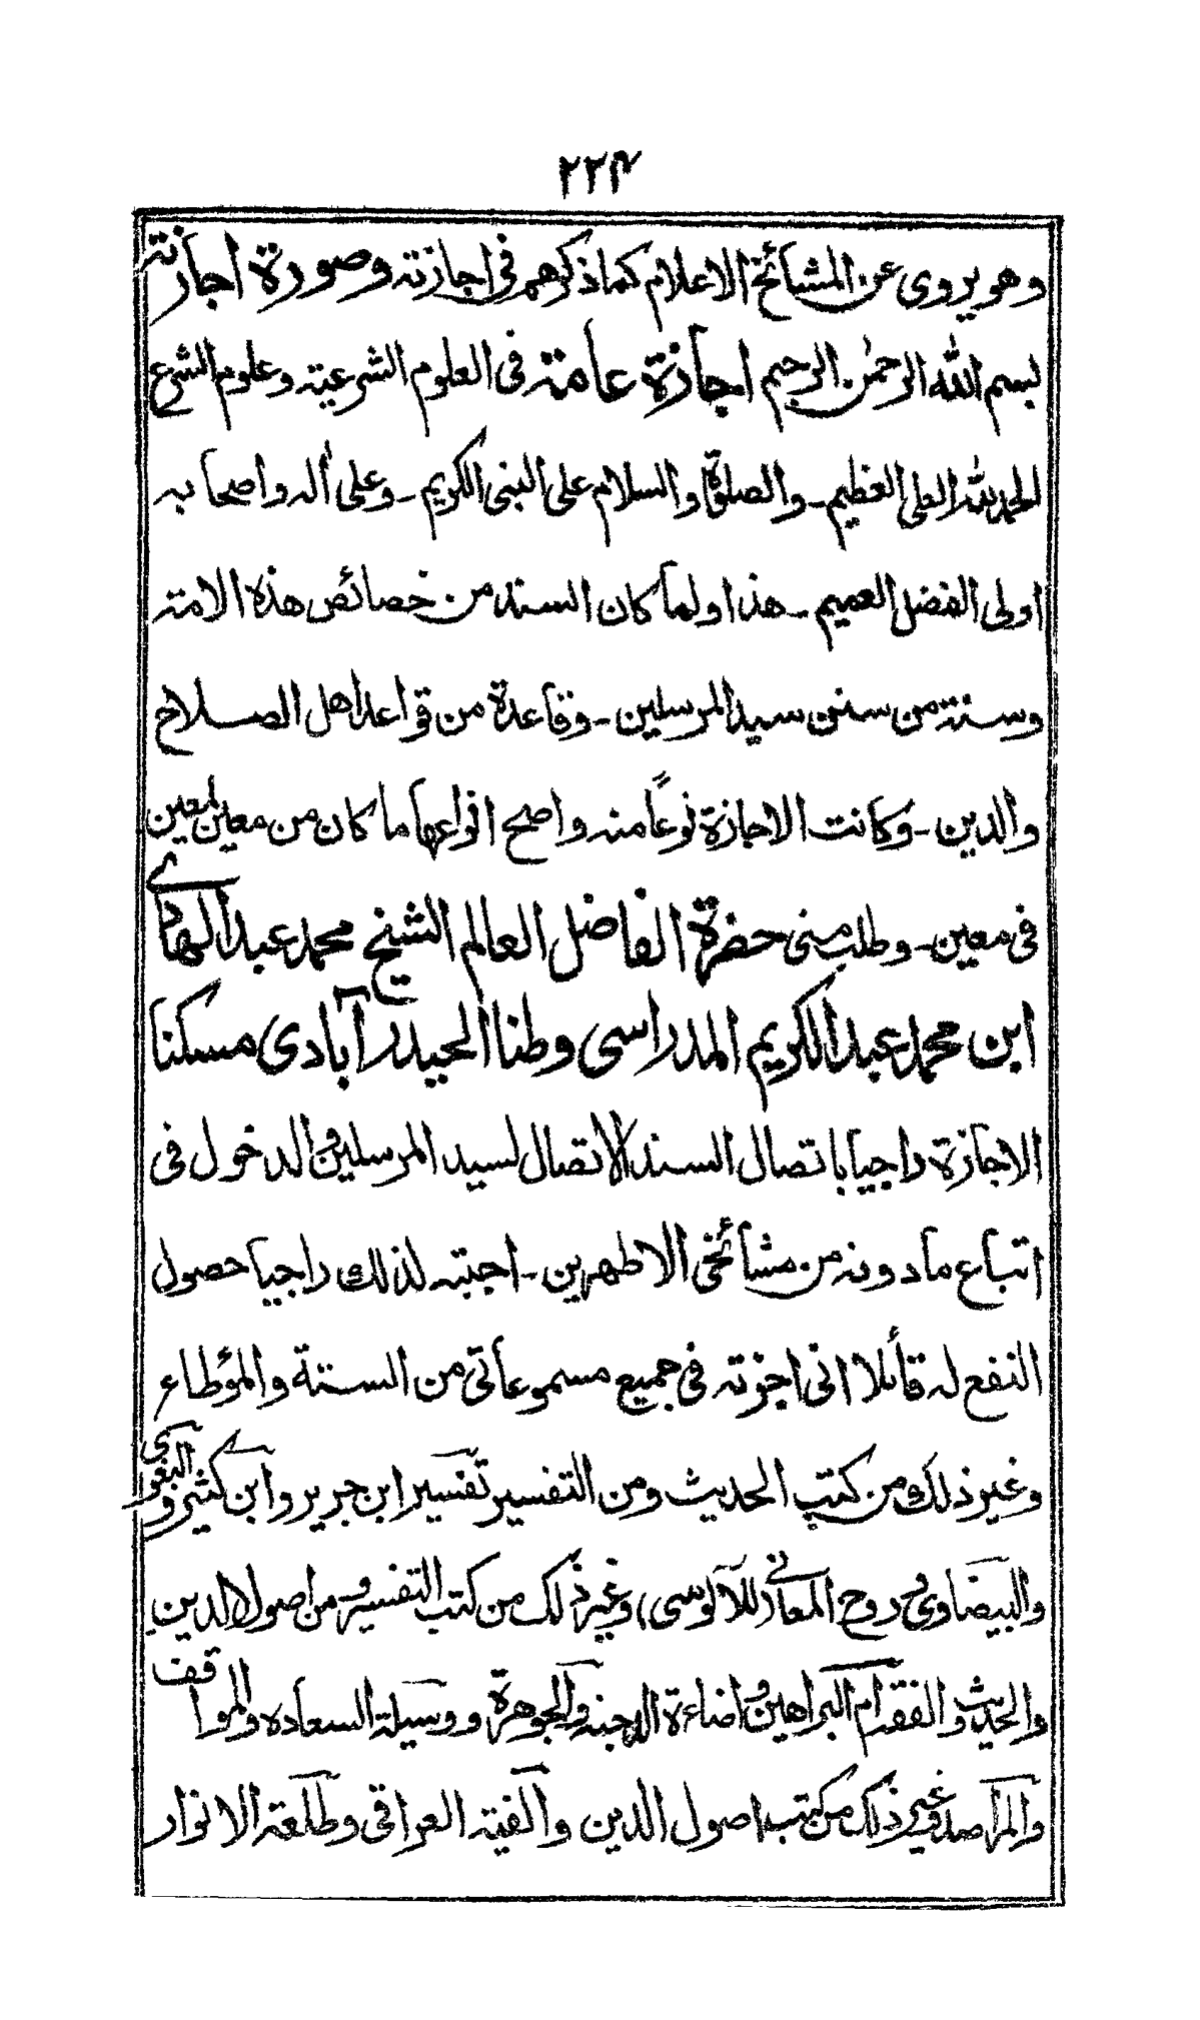 ٢٢٤
وهو يروى عن المشائخ الاعلام كما ذكرهم فى اجازته وصورة اجازته
بسم الله الرحمٰن الرحيم اجازة عامة فى العلوم الشرعية وعلوم الشرع
الحمد لله العلى العظيم ـ والصلوة والسلام على النبى الكريم ـ وعلى أله واصحابه
اولى الفضل العميم ـ هذا ولما كان السند من خصائص هذه الامة
وسنة من سنن سيد المرسلين ـ وقاعدة من قواعد اهل الصلاح
والدين ـ وكانت الاجازة نوعاً منه واصح انواعها ما كان من معين لمعين
فى معين ـ وطلب منى حضرة الفاضل العالم الشيخ محمد عبد الهادى
ابن محمد عبد الكريم المدراسى وطنا الحيدرآبادى مسكنا
الاجازة راجيا باتصال السند الاتصال لسيد المرسلين والدخول فى
اتباع مادونه من مشائخى الاطهرين ـ اجبته لذلك راجيا حصول
النفع له قائلا انى اجزته فى جميع مسموعاتى من السنة والمؤطاء
وغير ذلك من كتب الحديث ومن التفسير تفسير ابن جرير وابن كثير والبغوى
والبيضاوى وروح المعانى (للآلوسى) وغير ذلك من كتب التفسير ومن اصول الدين
والحديث والفقه ام البراهين واضاءة الدجنة والجوهرة ووسيلة السعاده والمواقف
والمراصد وغير ذلك من كتب اصول الدين وألفية العراقى وطلعة الانوار